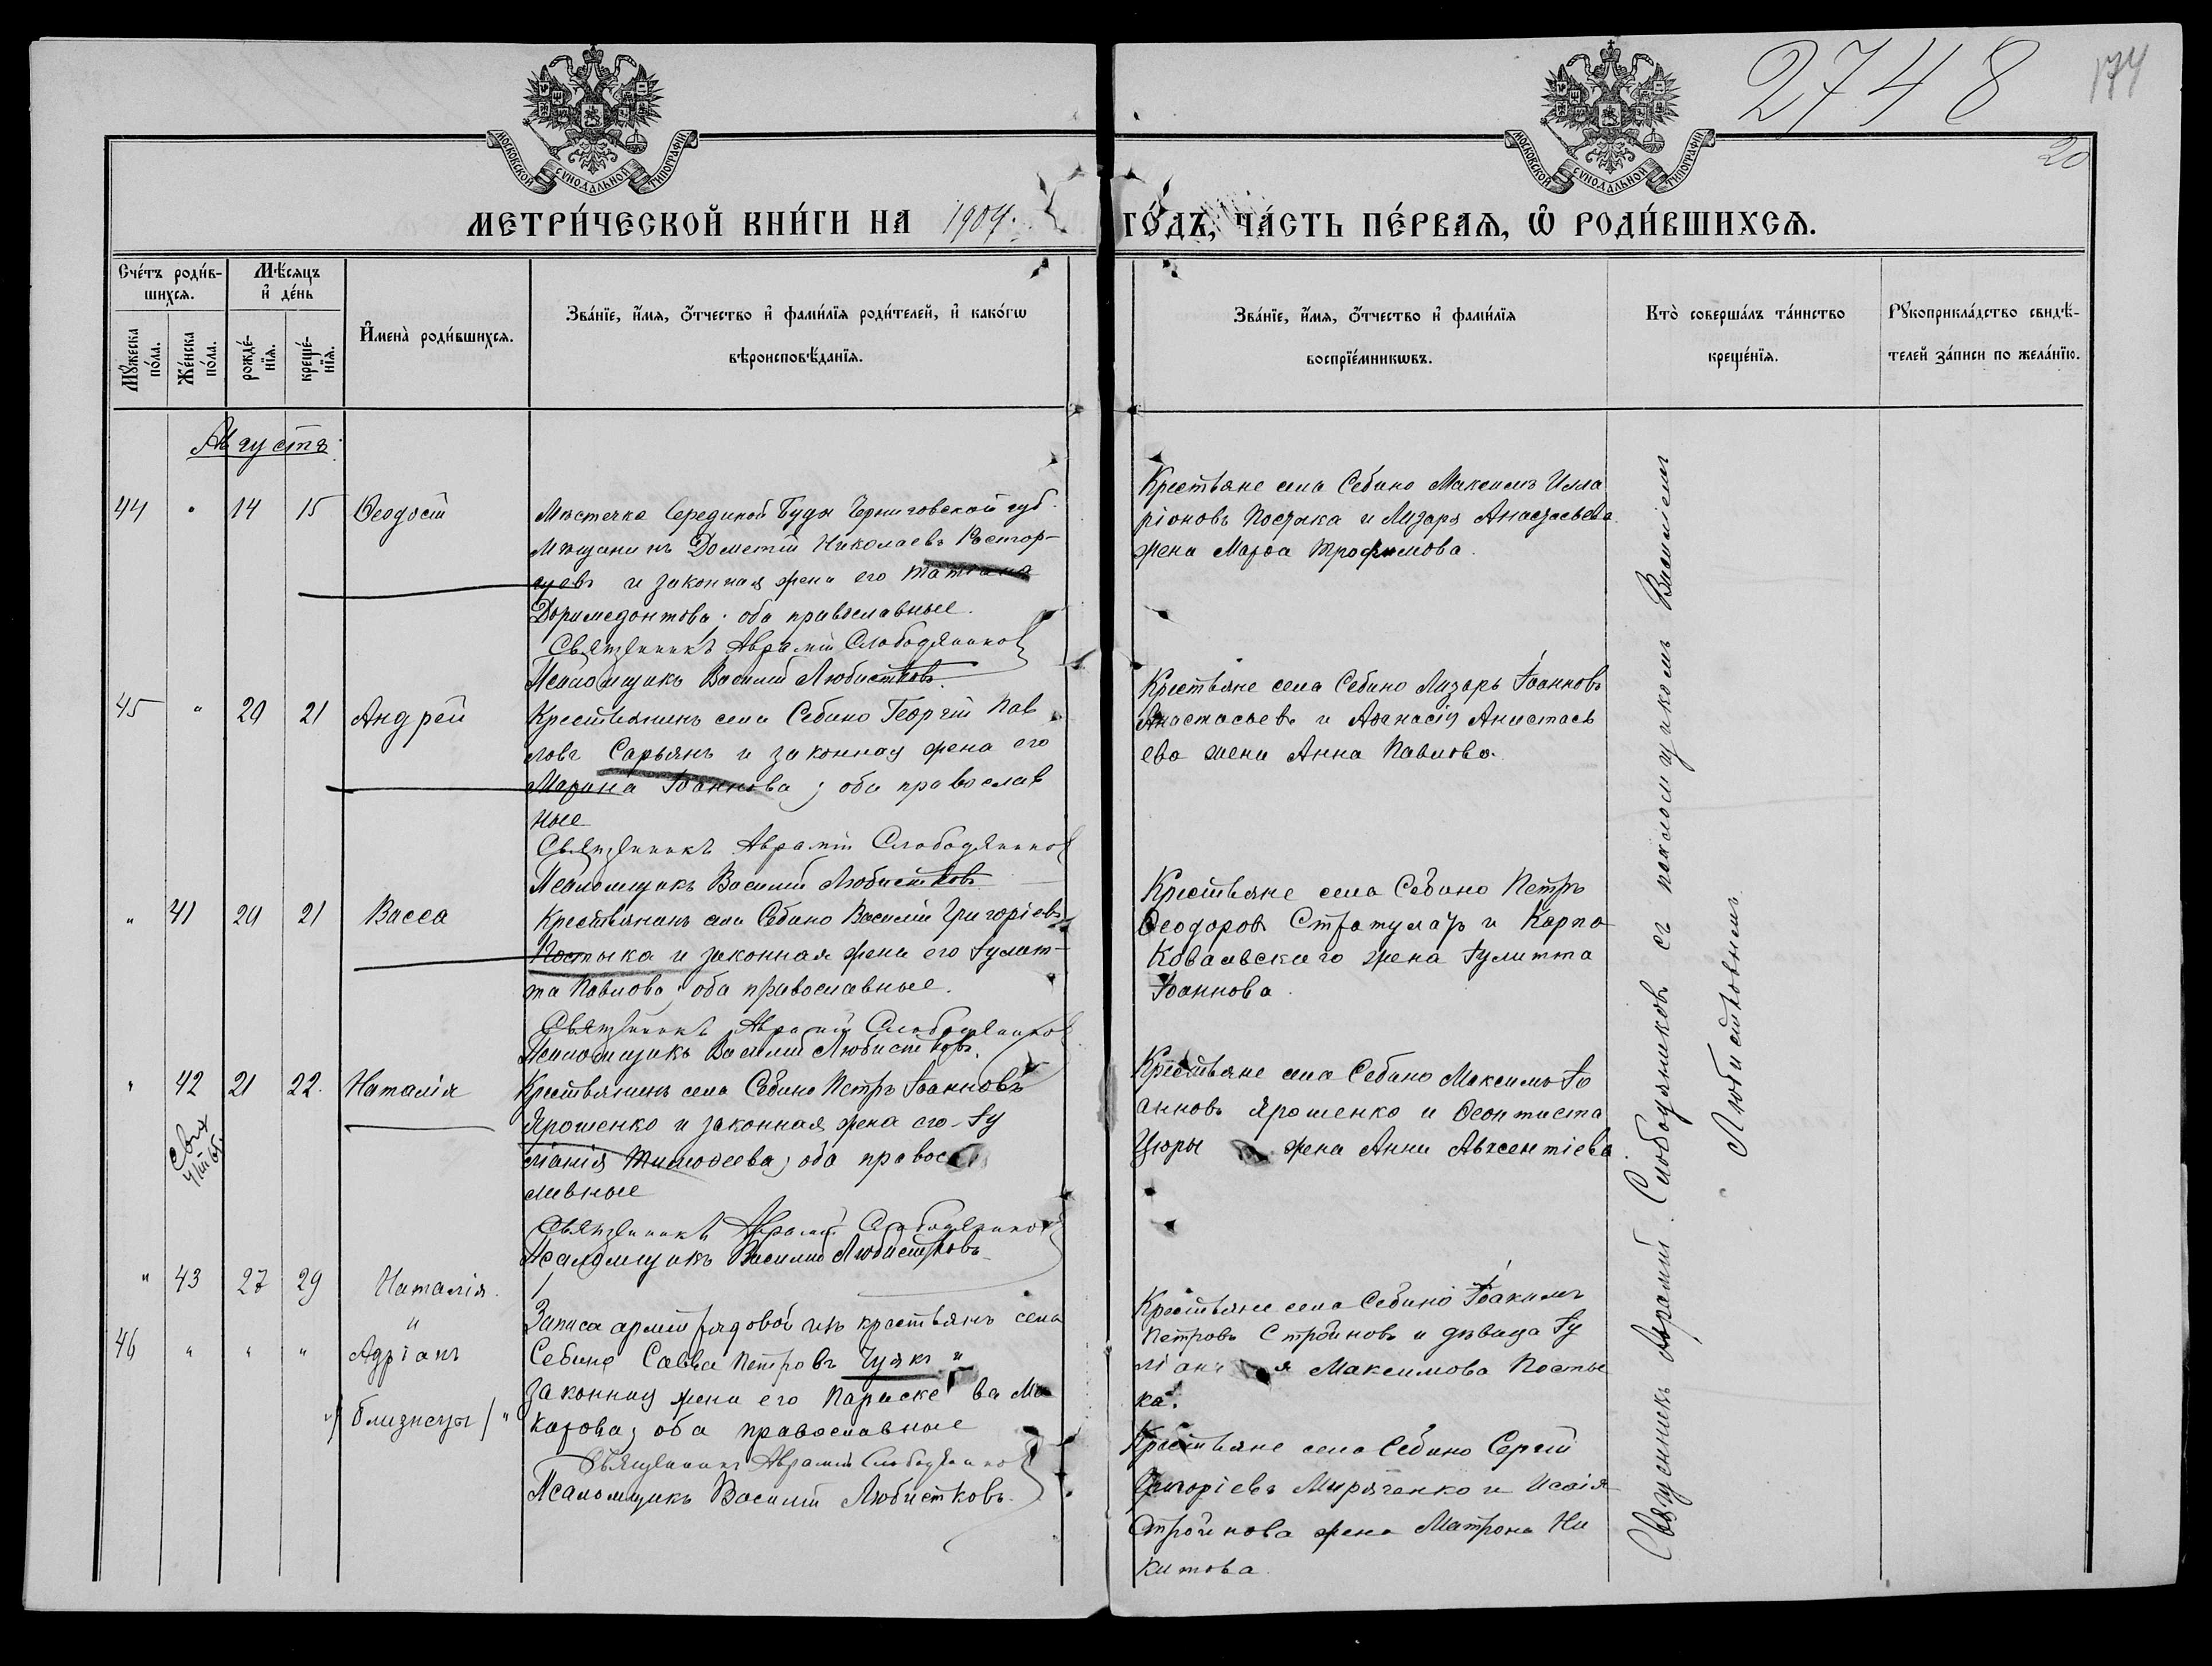 2748
174
20
МОСКОВСКОЙ СѴНОДАЛЬНОЙ ТИПОГРАФІИ
МОСКОВСКОЙ СѴНОДАЛЬНОЙ ТИПОГРАФІИ
МЕТРИ́ЧЕСКОЙ КНИ́ГИ НА 1904. ГО́ДЪ, ЧА́СТЬ ПЕ́РВАѦ, Ѡ҆ РОДИ́ВШИХСѦ.
Сче́тъ роди́в-
шихсѧ.
Мꙋ́жеска по́ла.
Же́нска по́ла.
Мѣ́сѧцъ
и҆ де́нь
рожде́-нїѧ.
креще́-нїѧ.
И҆мена̀ роди́вшихсѧ.
Зва́нїе, и҆́мѧ, ѻ҆́тчество и҆ фами́лїѧ роди́телей, и҆ како́гѡ
вѣроисповѣ́данїѧ.
Зва́нїе, и҆́мѧ, ѻ҆́тчество и҆ фами́лїѧ
воспрїе́мникѡвъ.
Кто̀ соверша́лъ та́инство
креще́нїѧ.
Рꙋкоприкла́дство свидѣ́-
телей за́писи по жела́нїю.
Августъ.
44 " 14 15 Ѳеодосій
Мѣстечка Серединой Буды Черниговской губ.
мѣщанинъ Дометій Николаевъ Расторгуевъ и законная жена его Татіана
Доримедонтова; оба православные.
Священникъ Аврамій Слободяников
Псаломщикъ Василій Любистковъ.
Крестьяне села Себино Максимъ Илла
ріоновъ Постыка и Лазаря Анастасьева
жена Марѳа Трофимова.
45 " 20 21 Андрей
Крестьянинъ села Себино Георгій Пав
ловъ Сарьянъ и законная жена его
Марина Іоаннова; оба православ
ные
Священникъ Аврамій Слободяников
Псаломщикъ Василій Любистковъ
Крестьяне села Себино Лазарь Іоанновъ
Анастасьевъ и Аѳанасія Анастась
ева жена Анна Павлова.
" 41 20 21 Васса
Крестьянинъ села Себино Василій Григоріевъ
Постыка и законная жена его Іулит-
та Павлова; оба православные.
Священникъ Аврамій Слободяников
Псаломщикъ Василій Любистковъ.
Крестьяне села Себино Петръ
Ѳеодоровъ Стратуларъ и Карпа
Ковалвскаго жена Іулитта
Іоаннова.
" 42 21 22. Наталія
Крестьянинъ села Себино Петръ Іоанновъ
Ярошенко и законная жена его Іу
ліанія Тимоѳеева; оба правос
лавные
Священникъ Аврамій Слободяников
Псаломщикъ Василій Любистковъ
Крестьяне села Себино Максимъ Іо
анновъ Ярошенко и Ѳеоктиста
Цюры жена Анна Авксентіева.
" 43 27 29 Наталія.
46 " " " Адріанъ
/близнецы/
Запаса арміи рядовой изъ крестьянъ села
Себино Савва Петровъ Чуякъ и
законная жена его Параскева Ма
карова; оба православные
Священникъ Аврамій Слободяников
Псаломщикъ Василій Любистковъ.
Крестьяне села Себино Іоакимъ
Петровъ Строиновъ и дѣвица Іу
ліанія Максимова Посты
ка.
Крестьяне села Себино Сергій
Григоріевъ Мираченко и Исаія
Строинова жена Матрона Ни
китова.
Священникъ Аврамій Слободяниковъ съ псаломщикомъ Василіемъ
Любистковымъ